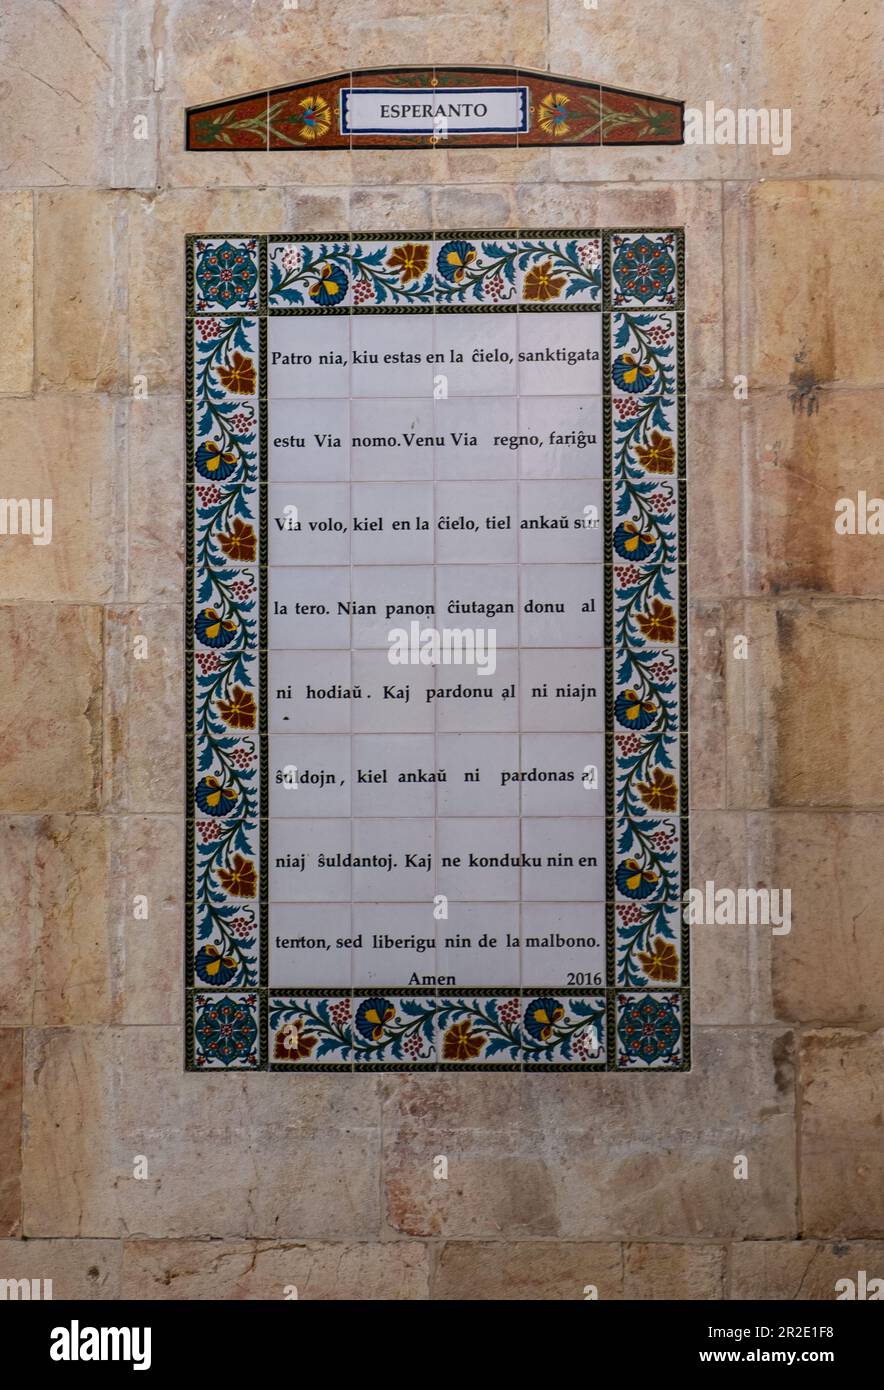 ESPERANTO
Patro nia, kiu estas en la ĉielo, sanktigata
estu Via nomo. Venu Via regno, fariĝu
Via volo, kiel en la ĉielo, tiel ankaŭ sur
la tero. Nian panon ĉiutagan donu al
ni hodiaŭ. Kaj pardonu al ni niajn
ŝuldojn, kiel ankaŭ ni pardonas al
niaj ŝuldantoj. Kaj ne konduku nin en
tenton, sed liberigu nin de la malbono.
Amen 2016
alamy
alamy
Image ID: 2R2E1F8
www.alamy.com